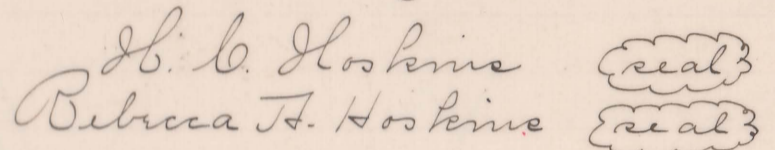 H. C. Hoskins (seal)
Rebecca A. Hoskins (seal)